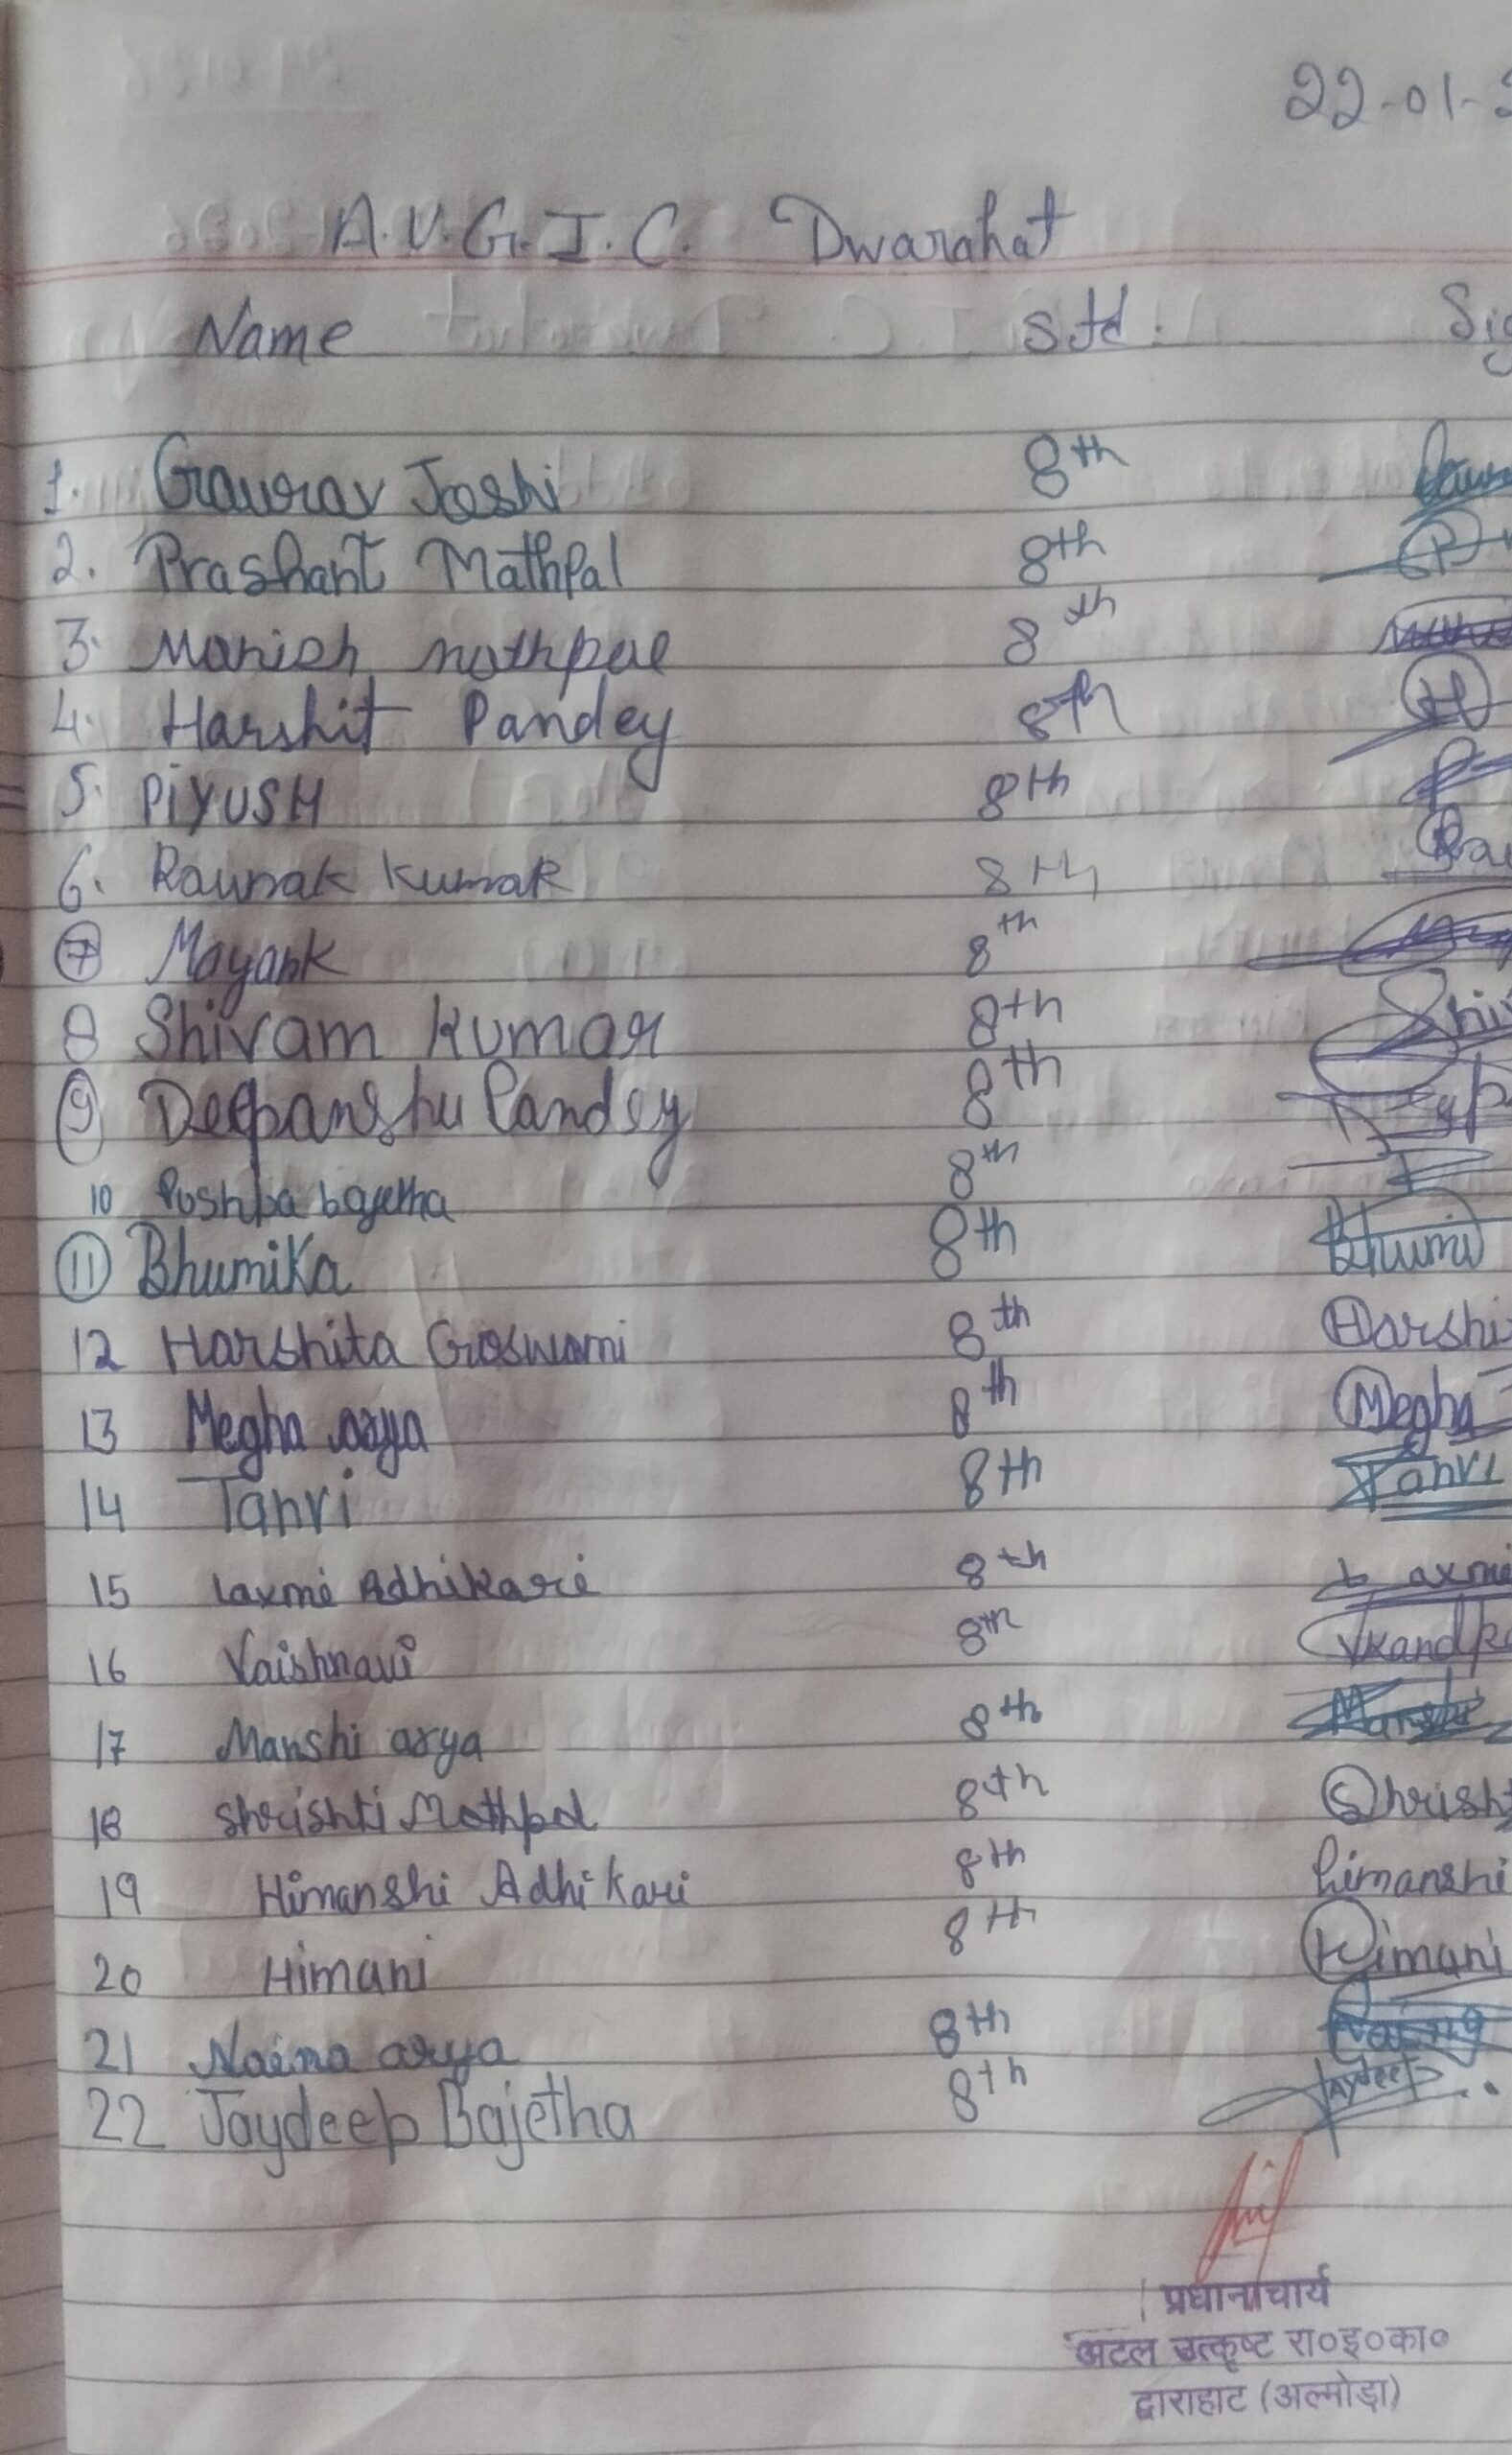 22-01-
A.U.G.I.C. Dwarahat
Name Std. Sig
1. Gaurav Joshi 8th
2. Prashant Mathpal 8th
3. Manish mathpal 8th
4. Harshit Pandey 8th H
5. PIYUSH 8th
6. Raunak kumar 8th Rau
7 Mayank 8th
8 Shivam Kumar 8th Shiv
9 Deepanshu Pandey 8th
10 Pushpa bajetha 8th
11 Bhumika 8th Bhumi
12 Harshita Goswami 8th Harshi
13 Megha arya 8th Megha
14 Tanvi 8th Tanvi
15 Laxmi Adhikari 8th Laxmi
16 Vaishnavi 8th Vkandpa
17 Manshi arya 8th Manshi
18 Shrishti Mathpal 8th Shrisht
19 Himanshi Adhikari 8th himanshi
20 Himani 8th Himani
21 Naina arya 8th Naina
22 Jaydeep Bajetha 8th Jaydeep
प्रधानाचार्य
अटल उत्कृष्ट रा०इ०का०
द्वाराहाट (अल्मोड़ा)